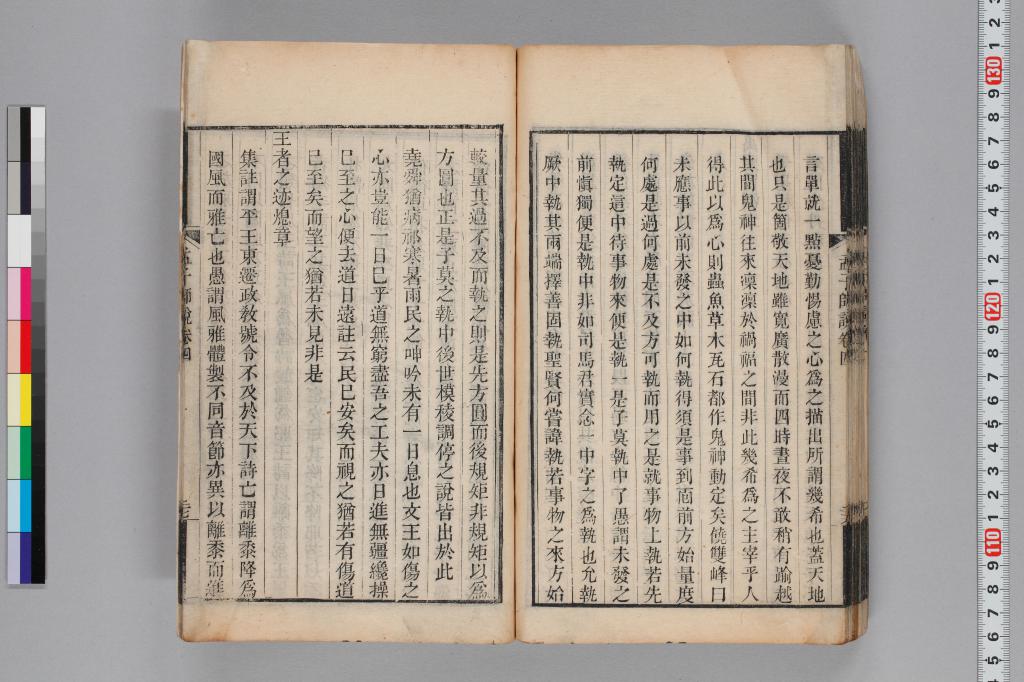 言單就一點憂勤惕慮之心爲之描出所謂幾希也蓋天地
也只是箇敬天地雖寬廣散漫而四時晝夜不敢稍有踰越
其間鬼神往來凜凜於禍福之間非此幾希爲之主宰乎人
得此以爲心則蟲魚草木瓦石都作鬼神動定矣饒雙峰曰
未應事以前未發之中如何執得須是事到面前方始量度
何處是過何處是不及方可執而用之是就事物上執若先
執定這中待事物來便是執一是子莫執中了愚謂未發之
前愼獨便是執中非如司馬君實念一中字之爲執也允執
厥中執其兩端擇善固執聖賢何嘗諱執若事物之來方始
孟子師說卷四
較量其過不及而執之則是先方圓而後規矩非規矩以爲
方圓也正是子莫之執中後世模稜調停之說皆出於此
堯舜猶病祁寒暑雨民之呻吟未有一日息也文王如傷之
心亦豈能一日已乎道無窮盡吾之工夫亦日進無疆纔操
已至之心便去道日遠註云民已安矣而視之猶若有傷道
已至矣而望之猶若未見非是
王者之迹熄章
集註謂平王東遷政敎號令不及於天下詩亡謂離黍降爲
國風而雅亡也愚謂風雅體製不同音節亦異以離黍而雖
孟子師說卷四
1 2 3 4 5 6 7 8 9 110 1 2 3 4 5 6 7 8 9 120 1 2 3 4 5 6 7 8 9 130 1 2 3